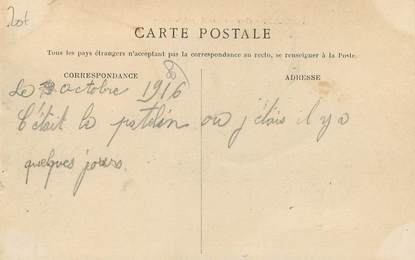 Lot
CARTE POSTALE
Tous les pays étrangers n'acceptant pas la correspondance au recto, se renseigner à la Poste.
CORRESPONDANCE
ADRESSE
Le 8 octobre 1916
C'était le patelin ou j'étais il y a
quelques jours.